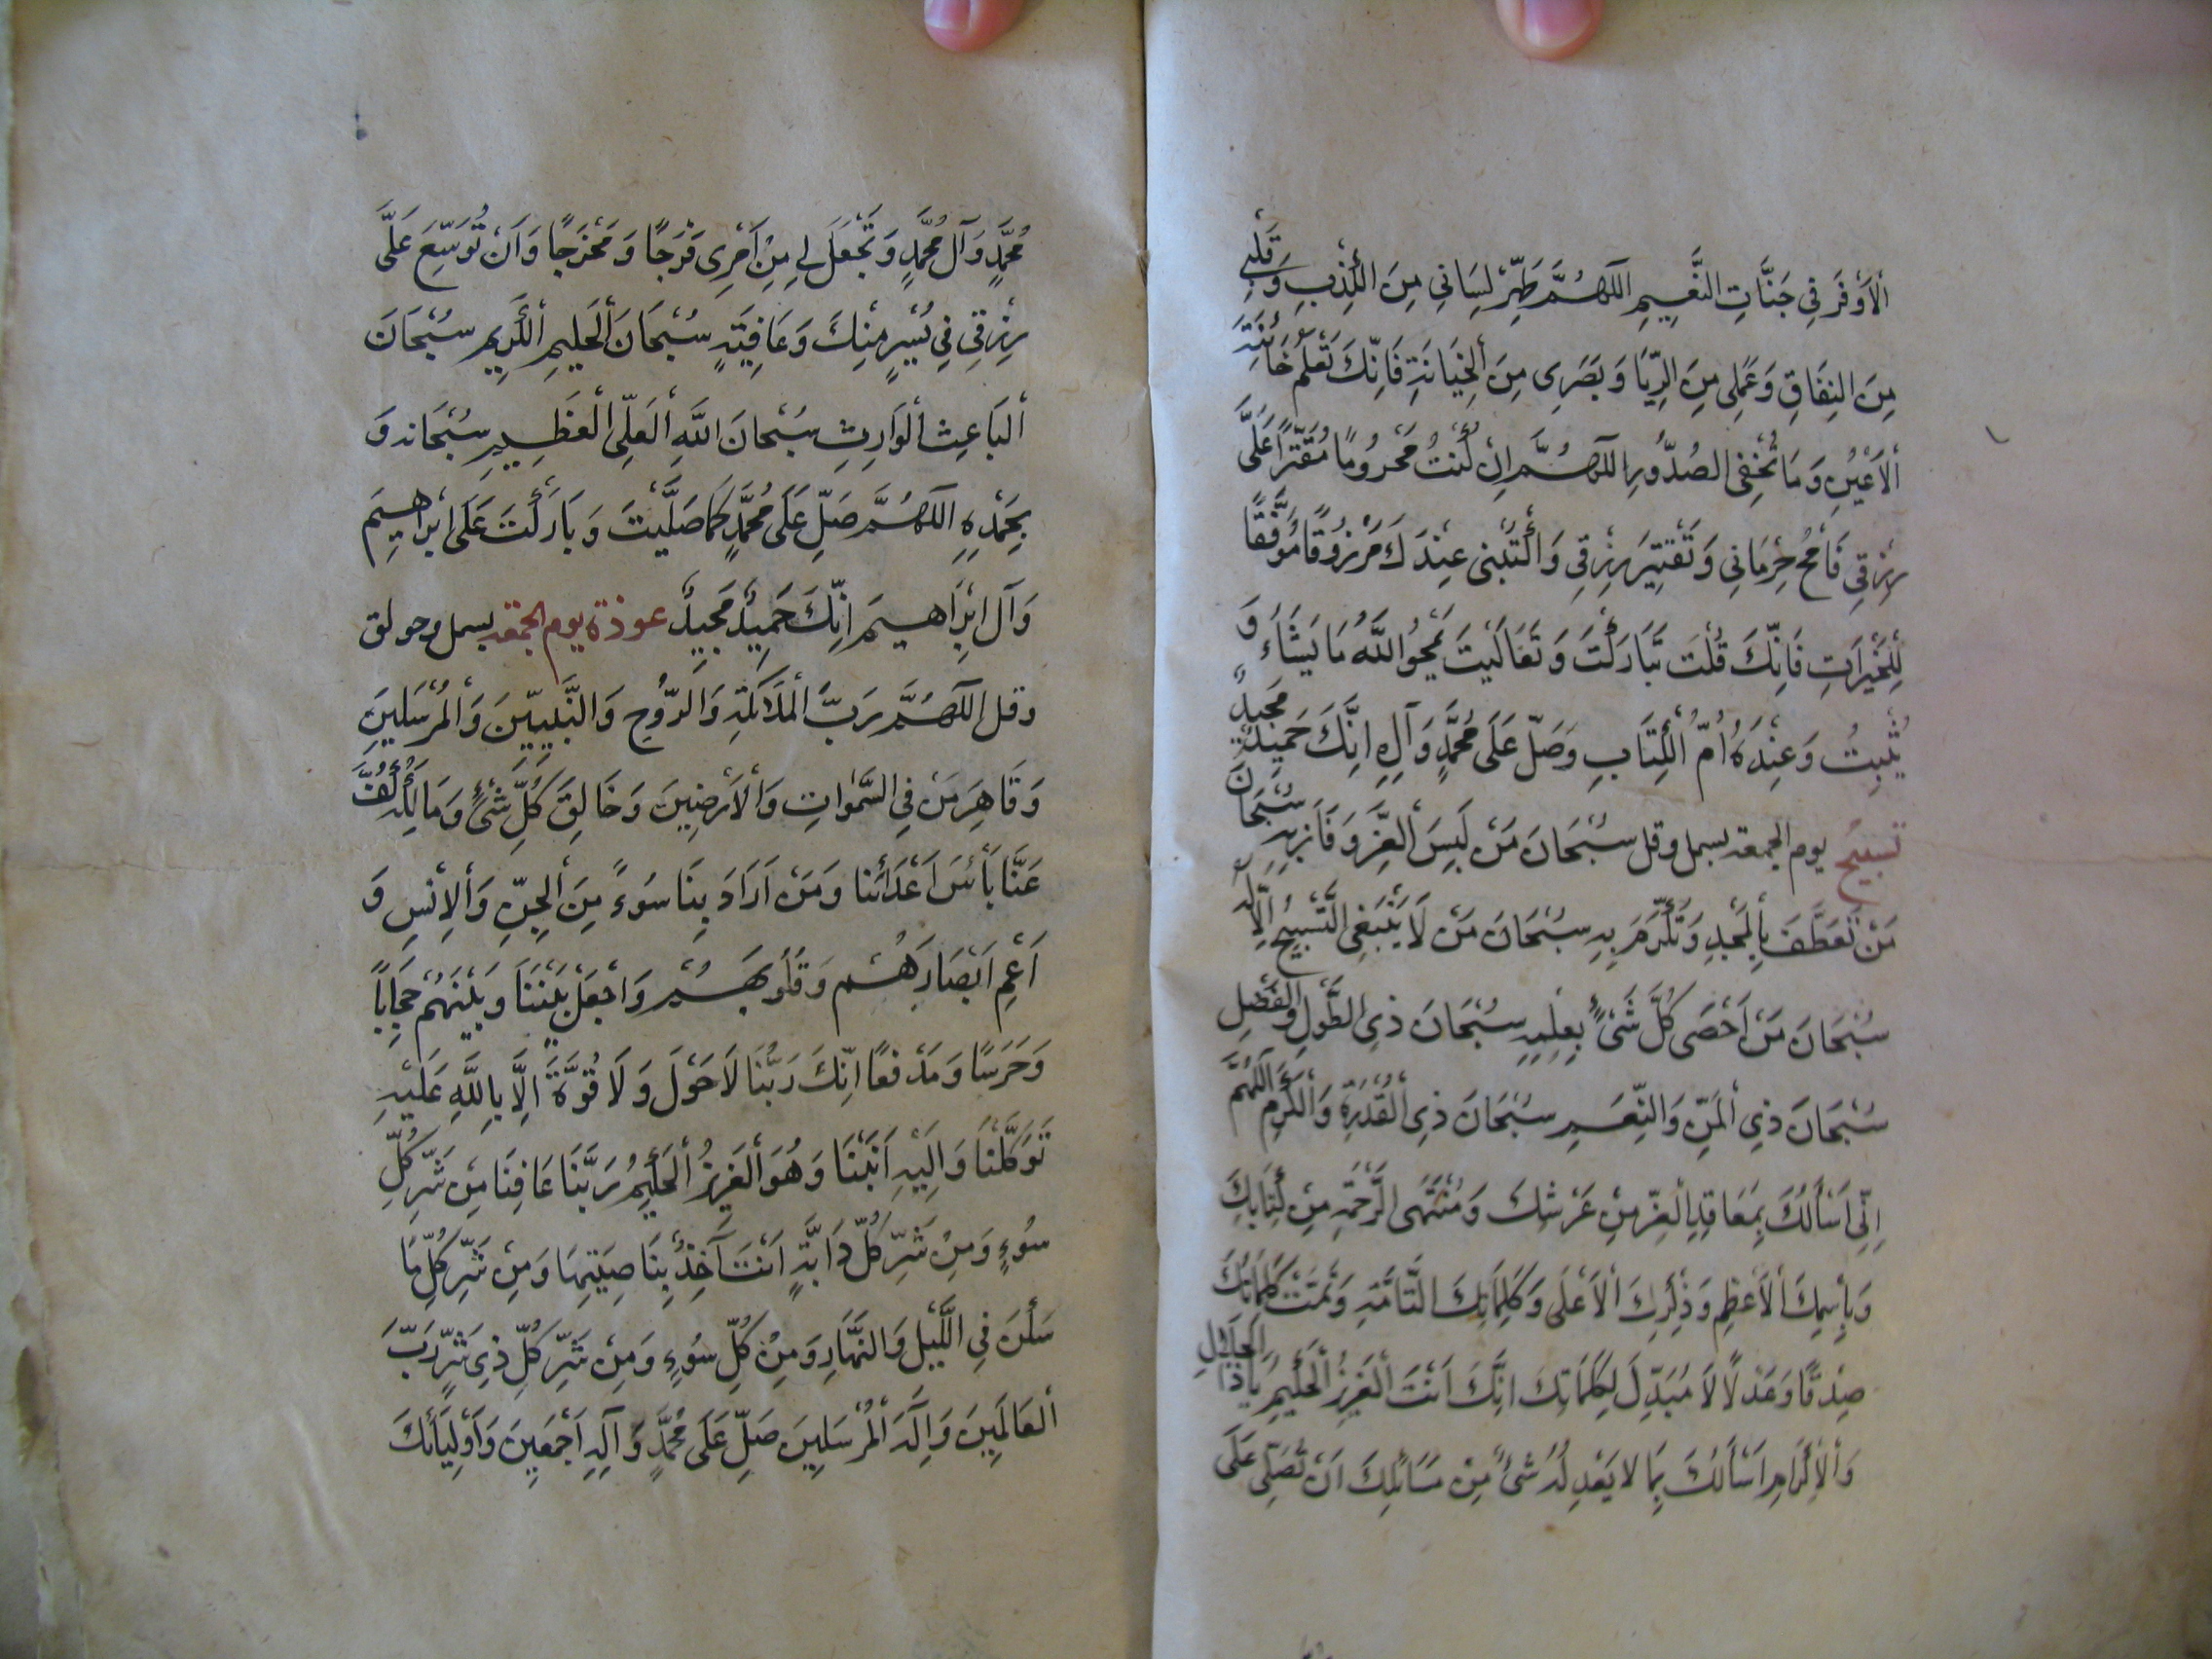 اَلْاَوْفَرَ فِي جَنَّاتِ النَّعِيمِ اَللّهُمَّ طَهِّرْ لِسَانِي مِنَ الْكِذْبِ وَقَلْبِي
مِنَ النِفَاقِ وَعَمَلِي مِنَ الرِّيَا وَبَصَرِى مِنَ الْخِيَانَةِ فَاِنَّكَ تَعْلَمُ خَائِنَةَ
الْاَعْيُنِ وَمَا تُخْفِى الصُدُّورِ اللّهُمَّ اِنْ كُنْتُ مَحْرُومًا مُقَتَّرًا عَلَىَّ
رِزْقِي فَامْحُ حِرْمَانِي وَتَقْتِيرَ رِزْقِي وَاكْتُبْنِى عِنْدَكَ مَرْزُوقًا مُوَفَّقًا
لِلْخَيْرَاتِ فَاِنَّكَ قُلْتَ تَبَارَكْتَ وَتَعَالَيْتَ يَمْحُوا اللَّهُ مَا يَشَاءُ وَ
يُثْبِتُ وَعِنْدَهُ اُمُّ الْكِتَابِ وَصَلِّ عَلَى مُحَمَّدٍ وَآلِهِ اِنَّكَ حَمِيدٌ مَجِيدٌ
تسبيح يوم الجمعة بسمل وقل سُبْحَانَ مَنْ لَبِسَ الْعِزَّ وَفَازَ بِهِ سُبْحَانَ
مَنْ تَعَطَّفَ بِالْمَجْدِ وَتَكَرَّمَ بِهِ سُبْحَانَ مَنْ لَا يَنْبَغِى التَّسْبِيحُ اِلَّا لَهُ
سُبْحَانَ مَنْ اَحْصَى كُلَّ شَىْءٍ بِعِلْمِهِ سُبْحَانَ ذِي الطَّوْلِ وَالْفَضْلِ
سُبْحَانَ ذِي الْمَنِّ وَالنِّعَمِ سُبْحَانَ ذِي الْقُدْرَةِ وَالْكَرَمِ اَللّهُمَّ
اِنِّي اَسْأَلُكَ بِمَعَاقِدِ الْعِزِّ مِنْ عَرْشِكَ وَمُنْتَهَى الرَّحْمَةِ مِنْ كِتَابِكَ
وَبِاسْمِكَ الْاَعْظَمِ وَذِكْرِكَ الْاَعْلَى وَكَلِمَاتِكَ التَّامَّةِ وَتَمَّتْ كَلِمَاتُكَ
صِدْقًا وَعَدْلًا لَا مُبَدِّلَ لِكَلِمَاتِكَ اِنَّكَ اَنْتَ الْعَزِيزُ الْحَلِيمُ يَا ذَا الْجَلَالِ
وَالْاِكْرَامِ اَسْأَلُكَ بِمَا لَا يَعْدِلُهُ شَىْءٌ مِنْ مَسَائِلِكَ اَنْ تُصَلِّى عَلَى
مُحَمَّدٍ وَآلِ مُحَمَّدٍ وَتَجْعَلَ لِي مِنْ اَمْرِى فَرَجًا وَمَخْرَجًا وَاَنْ تُوَسِّعَ عَلَىَّ
رِزْقِي فِي يُسْرٍ مِنْكَ وَعَافِيَةٍ سُبْحَانَ الْحَلِيمِ الْكَرِيمِ سُبْحَانَ
الْبَاعِثِ الْوَارِثِ سُبْحَانَ اللَّهِ الْعَلِّى الْعَظِيمِ سُبْحَانَهُ وَ
بِحَمْدِهِ اَللّهُمَّ صَلِّ عَلَى مُحَمَّدٍ كَمَا صَلَّيْتَ وَبَارَكْتَ عَلَى اِبْرَاهِيمَ
وَآلِ اِبْرَاهِيمَ اِنَّكَ حَمِيدٌ مَجِيدٌ عوذة يوم الجمعة بسمل وحولق
وقل اللّهُمَّ رَبَّ الْمَلَائِكَةِ وَالرُّوحِ وَالنَّبِيِيّنَ وَالْمُرْسَلِينَ
وَقَاهِرَ مَنْ فِي السَّمٰوَاتِ وَالْاَرْضِينَ وَخَالِقَ كُلِّ شَىْءٍ وَمَالِكَهُ كُفَّ
عَنَّا بَأْسَ اَعْدَائِنَا وَمَنْ اَرَادَ بِنَا سُوءً مِنَ الْجِنِّ وَالْاِنْسِ وَ
اَعْمِ اَبْصَارَهُمْ وَقُلُوبَهُمْ وَاجْعَلْ بَيْنَنَا وَبَيْنَهُمْ حِجَابًا
وَحَرَسًا وَمَدْفَعًا اِنَّكَ رَبُّنَا لَا حَوْلَ وَلَا قُوَّةَ اِلَّا بِاللَّهِ عَلَيْهِ
تَوَكَّلْنَا وَاِلَيْهِ اَنَبْنَا وَهُوَ الْعَزِيزُ الْحَلِيمُ رَبَّنَا عَافِنَا مِنْ شَرِّ كُلِّ
سُوءٍ وَمِنْ شَرِّ كُلِّ دَابَّةٍ اَنْتَ آخِذٌ بِنَاصِيَتِهَا وَمِنْ شَرِّ كُلِّ مَا
سَكَنَ فِي اللَّيْلِ وَالنَّهَارِ وَمِنْ كُلِّ سُوءٍ وَمِنْ شَرِّ كُلِّ ذِي شَرٍّ رَبَّ
الْعَالَمِينَ وَاِلَهَ الْمُرْسَلِينَ صَلِّ عَلَى مُحَمَّدٍ وَآلِهِ اَجْمَعِينَ وَاَوْلِيَائِكَ